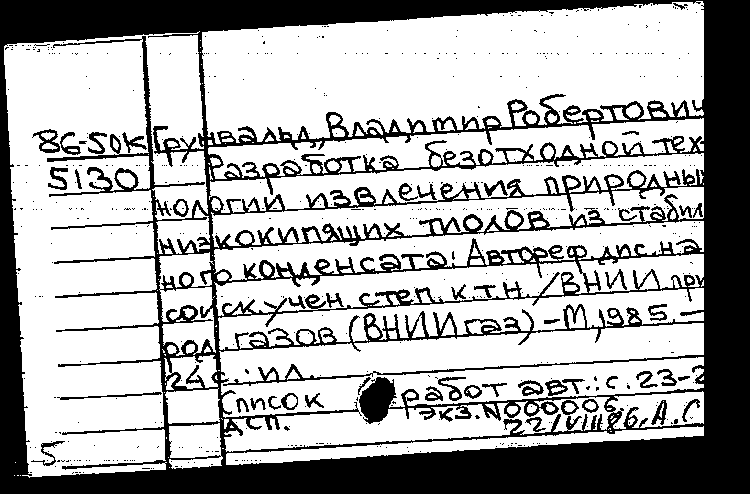 86-50К Грунвальд, Владимир Робертович
5130 Разработка безотходной тех-
нологии извлечения природных
низкокипящих тиолов из стабил
ного конденсата: Автореф. дис. на
соиск. учен. степ. к.т.н. /ВНИИ при
род. газов (ВНИИгаз) – М, 1985. –
24 с.: ил.
Список работ авт.: с. 23-2
ДСП. экз. N000006
22/VIII 86. А.С
5